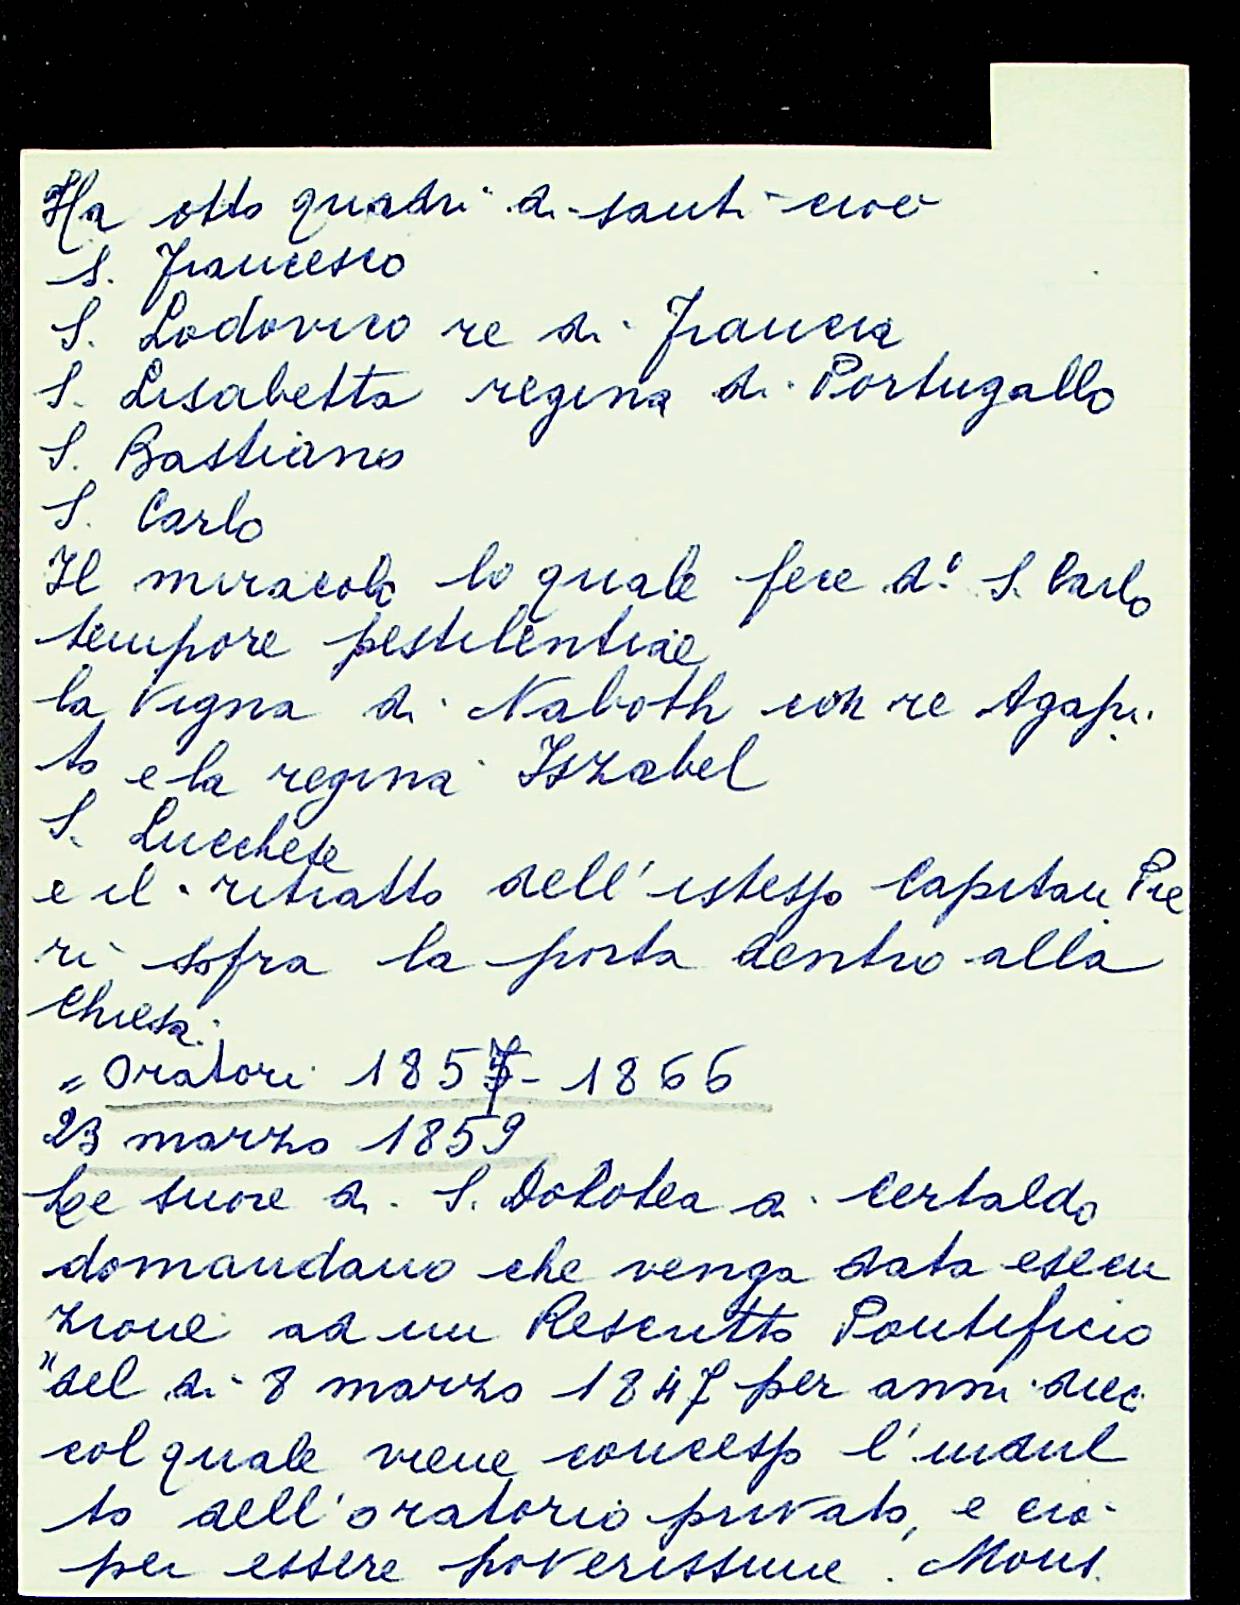 Ha otto quadri di santi cioè
S. Francesco
S. Lodovico re di Francia
S. Lisabetta regina di Portugallo
S. Bastiano
S. Carlo
Il miracolo lo quale fece d.º S. Carlo
tempore pestilentiae
la Vigna di Naboth con re Agapi
to e la regina Iszabel
S. Lucchese
e il ritratto dell'istesso Capitan Pie
ri sopra la porta dentro alla
Chiesa.
" Oratori 1857 - 1866
23 marzo 1859
Le suore di S. Dorotea di Certaldo
domandano che venga data esecu
zione ad un Rescritto Pontificio
"del dì 8 marzo 1847 per anni dieci
col quale viene concesso l'indul
to dell'oratorio privato, e ciò
per essere poverissime. Mons.